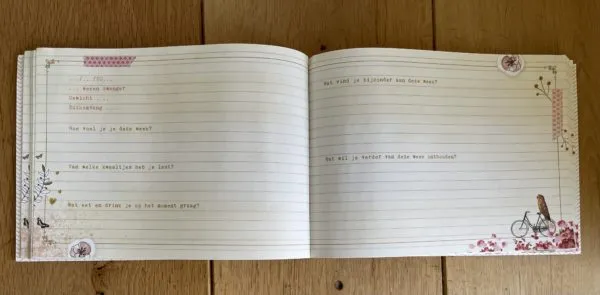 ... weken zwanger
Gewicht ...
Buikomvang ...
Hoe voel je je deze week?
Van welke kwaaltjes heb je last?
Wat eet en drink je op het moment graag?
Wat vind je bijzonder aan deze week?
Wat wil je verder van deze week onthouden?